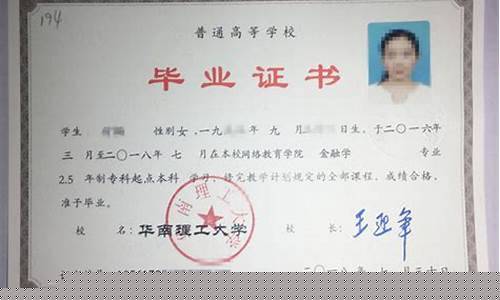 194
普通高等学校
毕业证书
学生 性别女,一九 年 九 月 日生,于二〇一六年
三 月至二〇一八年 七 月在本校网络教育学院 金融学 专业
2.5 年制专科起点本科 学习,修完教学计划规定的全部课程,成绩合格,
准予毕业。
校 名:华南理工大学 校 长:
华南理工大学
二〇一八年七月三十日